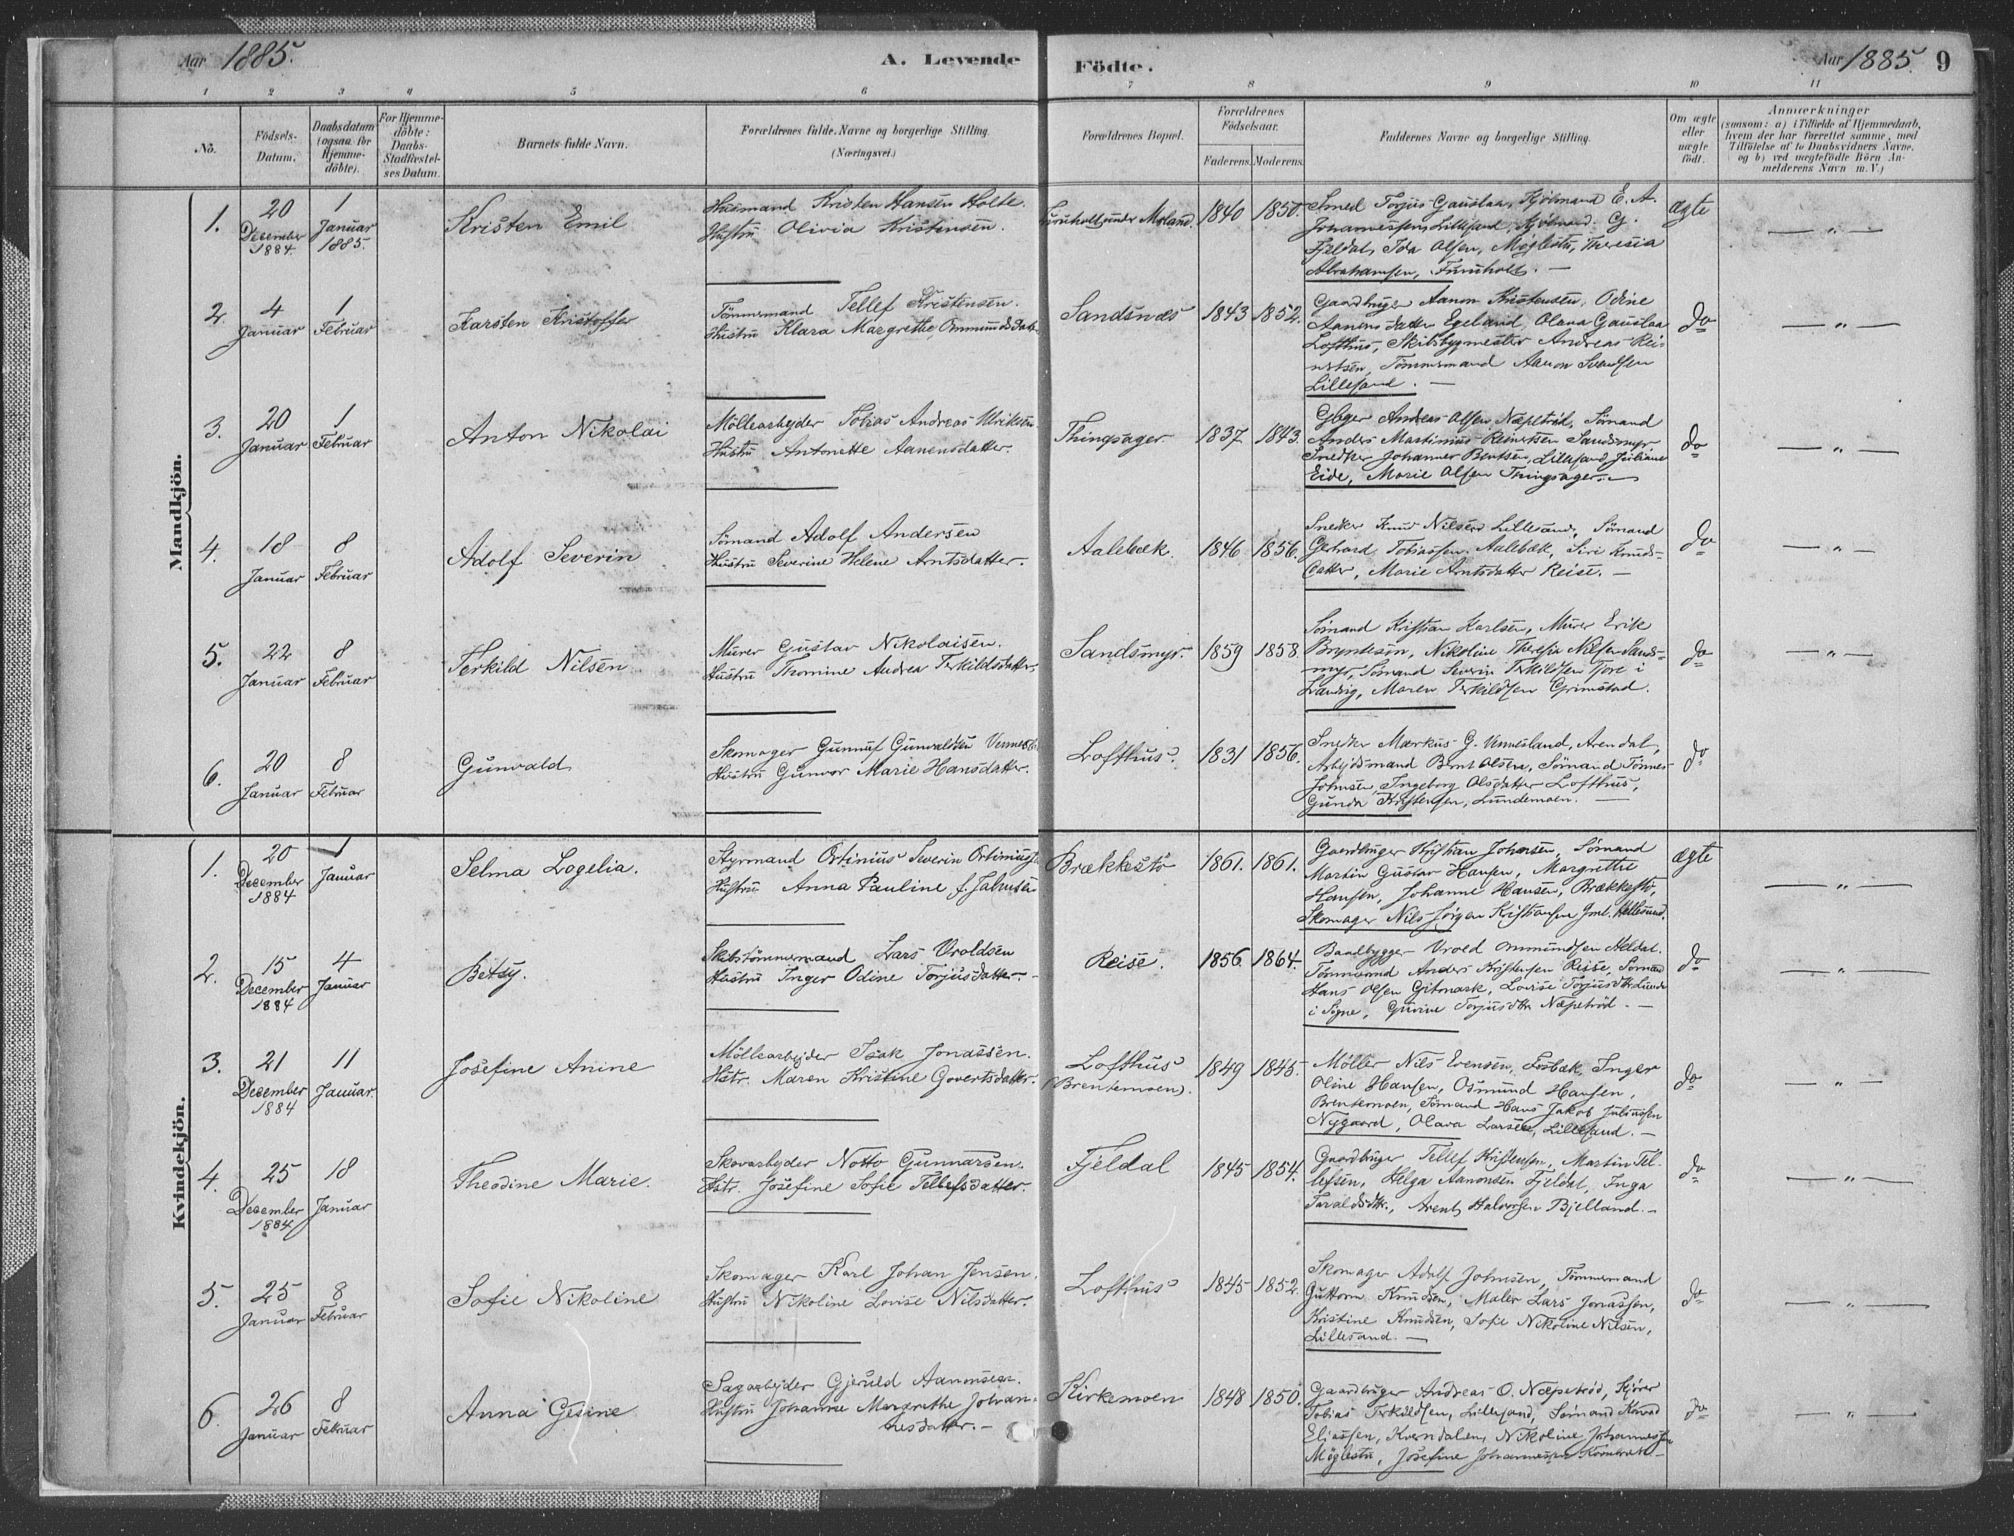 Aar 1885.
A. Levende
Födte.
Aar 1885. 9
1 2 3 4 5 6 7 8 9 10 11
No.
Födsels-Datum.
Daabsdatum (ogsaa for Hjemme-döbte).
For Hjemme-döbte: Daabs-Stadfæstel-ses Datum.
Barnets fulde Navn.
Forældrenes fulde Navne og borgerlige Stilling.
(Næringsvei.)
Forældrenes Bopæl.
Forældrenes Födselsaar.
Faderens. Moderens.
Faddernes Navne og borgerlige Stilling.
Om ægte eller uægte födt.
Anmærkninger
(saasom: a) i Tilfælde af Hjemmedaab,
hvem der har forrettet samme, med
Tilföielse af to Daabsvidners Navne,
og b) ved uægtefödte Börn An-
melderens Navn m. V.)
Mandkjön.
1. 20 December 1884. 1 Januar 1885. Kristen Emil
Husmand Kristen Hansen Holte.
Hustru Olivia Kristensen.
1840 1850.
Smed Torjus Gauslaa, Kjöbmand E. A.
Johannessen, Lillesand, Kjöbmand G.
Fjeldal, Ida Olsen, Möglestu, Theresia
Abrahamsen, Furuholt. —
ægte
— " —
2. 4 Januar 1 Februar Karsten Kristoffer
Tömmermand Tellef Kristensen.
Hustru Klara Margrethe Ommundsdatr
Sandsnæs 1843 1852.
Gaardbruger Aanon Kristensen, Odine
Aanensdatter Egeland, Olava Gauslaa
Lofthus, Skibsbygmester Andreas Rei-
nertsen, Tömmermand Aanon Svendsen
Lillesand. —
do
— " —
3. 20 Januar 1 Februar Anton Nikolai
Möllearbejder Tobias Andreas Ulriksen
Hustru Antonette Aanensdatter.
Thingsager 1837 1843.
Gbger Andreas Olsen Næpetröd, Sömand
Anders Martinius Reinertsen Sandsmyr
Snedker Johannes Bentsen, Lillesand, Juliane
Eide, Marie Olsen Thingsager. —
do
— " —
4. 18 Januar 8 Februar Adolf Severin
Sömand Adolf Andersen
Hustru Severine Helene Arntsdatter.
Aalebæk. 1846 1856.
Snedker Knud Nilsen Lillesand, Sömand
Gerhard Tobiassen Aalebæk, Siri Knuds-
datter, Marie Arntsdatter Reise. —
do
— " —
5. 22 Januar 8 Februar Terkild Nilsen
Murer Gustav Nikolaisen.
Hustru Thomine Andrea Terkildsdatter.
Sandsmyr. 1859 1858.
Sömand Kristian Karlsen, Murer Erik
Bryntesön, Nikoline Theresia Nilsen Sands-
myr, Sömand Severin Terkildsen Tjore i
Landvig, Maren Terkildsen Grimstad.
do
— " —
6. 20 Januar 8 Februar Gunvald
Skomager Gunnuf Gunvaldsen
Hustru Gunvor Marie Hansdatter.
Lofthus. 1831 1856.
Snedker Markus G. Vennesland, Arendal,
Arbejdsmand Bernt Olsen, Sömand Tönnes
Johnsen, Ingeborg Olsdatter Lofthus,
Gunda Kristensen, Lundemoen. —
do
Kvindekjön.
1. 20 December 1884 1 Januar Selma Logelia.
Styrmand Ortinius Severin
Hustru Anna Pauline f. Jahnsen
Brækkestö 1861. 1861.
Gaardbruger Kristian Johnsen, Sömand
Martin Gustav Hansen, Margrethe
Hansen, Johanne Hansen, Brækkestö,
Skomager Nils Jörgen Kristiansen Gml. Hellesund.
ægte
— " —
2. 15 December 1884 4 Januar Betsy.
Skibstömmermand Lars Vroldsen
Hustru Inger Odine Torjusdatter.
Reise. 1856 1864.
Baadbygger Vrold Ommundsen Heldal.
Tömmermd Anders Kristensen Reise, Sömand
Hans Olsen Gitmark, Lovise Torjusdtr Lunde
i Sögne, Torjusdtr Næpetröd. —
do
— " —
3. 21 December 1884 11 Januar. Josefine Anine
Möllearbejder Isak Jonassen.
Hstr. Maren Kristine Govertsdatter.
Lofthus
(Brentemoen). 1849 1845.
Møller Nils Evensen, Fosbæk, Inger
Oline Hansen, Osmund Hansen,
Brentemoen, Sömand Hans Jakob Juliussen
Nygaard, Olava Larsen, Lillesand. —
do
— " —
4. 25 December 1884 18 Januar Theodine Marie.
Skovarbejder Notto Gunnarsen.
Hstr. Josefine Sofie Tellefsdatter.
Fjeldal 1845 1854.
Gaardbruger Tellef Kristensen, Martin Tel-
lefsen, Helga Aanonsen Fjeldal, Inga
Taraldsdtr., Arent Halvorsen Bjelland. —
do
— " —
5. 25 Januar 8 Februar Sofie Nikoline
Skomager Karl Johan Jensen.
Hustru Nikoline Lovise Nilsdatter.
Lofthus 1845 1852.
Skomager Adolf Johnsen, Tömmermand
Guttorm Knudsen, Maler Lars Jonassen,
Kristine Knudsen, Sofie Nikoline Nilsen,
Lillesand. —
do
— " —
6. 26 Januar 8 Februar Anna Gesine
Sagarbejder Gjeruld Aanonsen.
Hustru Johanne Margrethe Johan-
nesdatter. —
Kirkemoen 1848 1850.
Gaardbruger Andreas O. Næpetröd, Kjörer
Tobias Terkildsen, Lillesand, Sömand Konrad
Eliassen, Kverndalen, Nikoline Johannessen
Möglestu, Josefine Johannessen
do
— " —